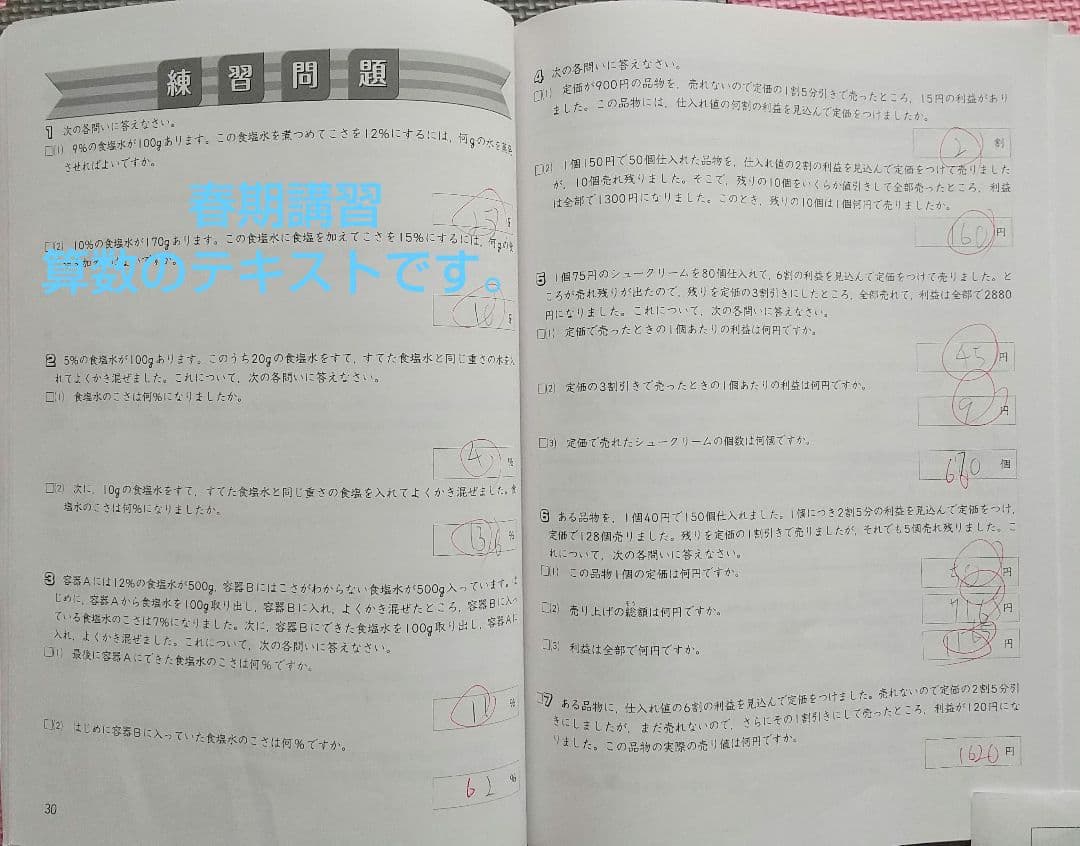 練習問題
1 次の各問いに答えなさい。
□(1) 9%の食塩水が100gあります。この食塩水を煮つめてこさを12%にするには，何gの水を蒸発
させればよいですか。
g
春期講習
□(2) 10%の食塩水が170gあります。この食塩水に食塩を加えてこさを15%にするには，何gの食
算数のテキストです。
10 g
2 5%の食塩水が100gあります。このうち20gの食塩水をすて，すてた食塩水と同じ重さの水を入
れてよくかき混ぜました。これについて，次の各問いに答えなさい。
□(1) 食塩水のこさは何%になりましたか。
4 %
□(2) 次に，10gの食塩水をすて，すてた食塩水と同じ重さの食塩を入れてよくかき混ぜました。食
塩水のこさは何%になりましたか。
%
3 容器Aには12%の食塩水が500g，容器Bにはこさがわからない食塩水が500g入っています。は
じめに，容器Aから食塩水を100g取り出し，容器Bに入れ，よくかき混ぜたところ，容器Bに入っ
ている食塩水のこさは7%になりました。次に，容器Bにできた食塩水を100g取り出し，容器Aに
入れ，よくかき混ぜました。これについて，次の各問いに答えなさい。
□(1) 最後に容器Aにできた食塩水のこさは何%ですか。
11 %
□(2) はじめに容器Bに入っていた食塩水のこさは何%ですか。
6 %
30
4 次の各問いに答えなさい。
□(1) 定価が900円の品物を，売れないので定価の1割5分引きで売ったところ，15円の利益があり
ました。この品物には，仕入れ値の何割の利益を見込んで定価をつけましたか。
2 割
□(2) 1個150円で50個仕入れた品物を，仕入れ値の2割の利益を見込んで定価をつけて売りました
が，10個売れ残りました。そこで，残りの10個をいくらか値引きして全部売ったところ，利益
は全部で1300円になりました。このとき，残りの10個は1個何円で売りましたか。
160 円
5 1個75円のシュークリームを80個仕入れて，6割の利益を見込んで定価をつけて売りました。と
ころが売れ残りが出たので，残りを定価の3割引きにしたところ，全部売れて，利益は全部で2880
円になりました。これについて，次の各問いに答えなさい。
□(1) 定価で売ったときの1個あたりの利益は何円ですか。
45 円
□(2) 定価の3割引きで売ったときの1個あたりの利益は何円ですか。
9 円
□(3) 定価で売れたシュークリームの個数は何個ですか。
個
6 ある品物を，1個40円で150個仕入れました。1個につき2割5分の利益を見込んで定価をつけ，
定価で128個売りました。残りを定価の1割引きで売りましたが，それでも5個売れ残りました。こ
れについて，次の各問いに答えなさい。
□(1) この品物1個の定価は何円ですか。
50 円
□(2) 売り上げの総額は何円ですか。
円
□(3) 利益は全部で何円ですか。
円
□7 ある品物に，仕入れ値の6割の利益を見込んで定価をつけました。売れないので定価の2割5分引
きにしましたが，まだ売れないので，さらにその1割引きにして売ったところ，利益が120円にな
りました。この品物の実際の売り値は何円ですか。
1620 円